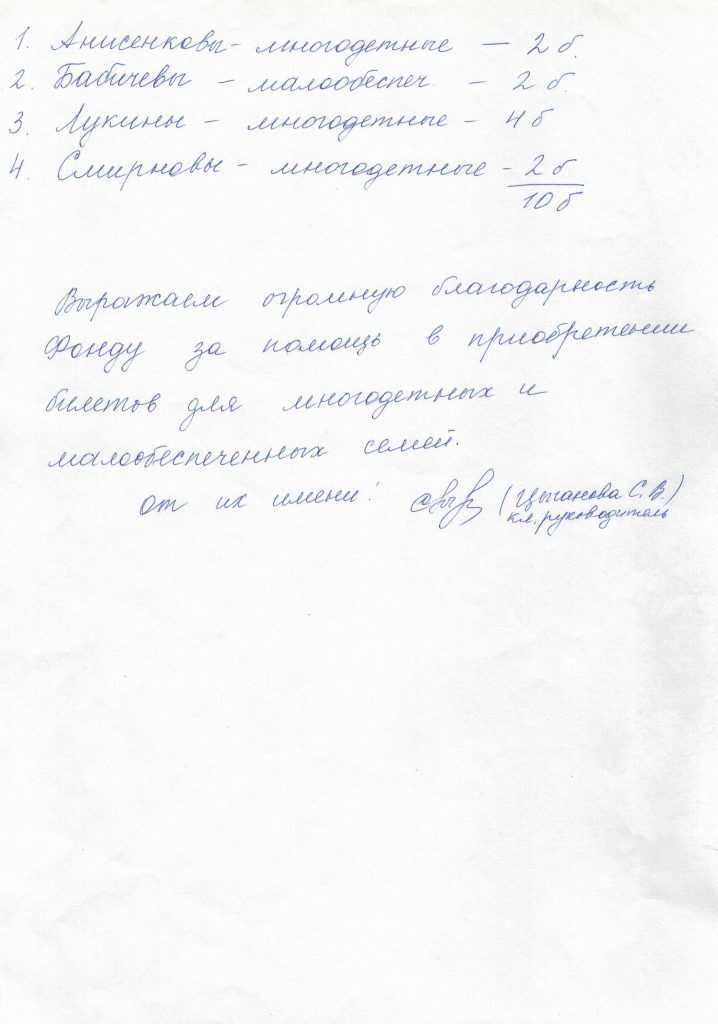 1. Анисенковы - многодетные — 2 б.
2. Бабичевы - малообеспеч. - 2 б.
3. Лукины - многодетные - 4 б
4. Смирновы - многодетные - 2 б
10 б
Выражаем огромную благодарность
Фонду за помощь в приобретении
билетов для многодетных и
малообеспеченных семей.
от их имени: (Цыганова С. В.)
кл. руководитель